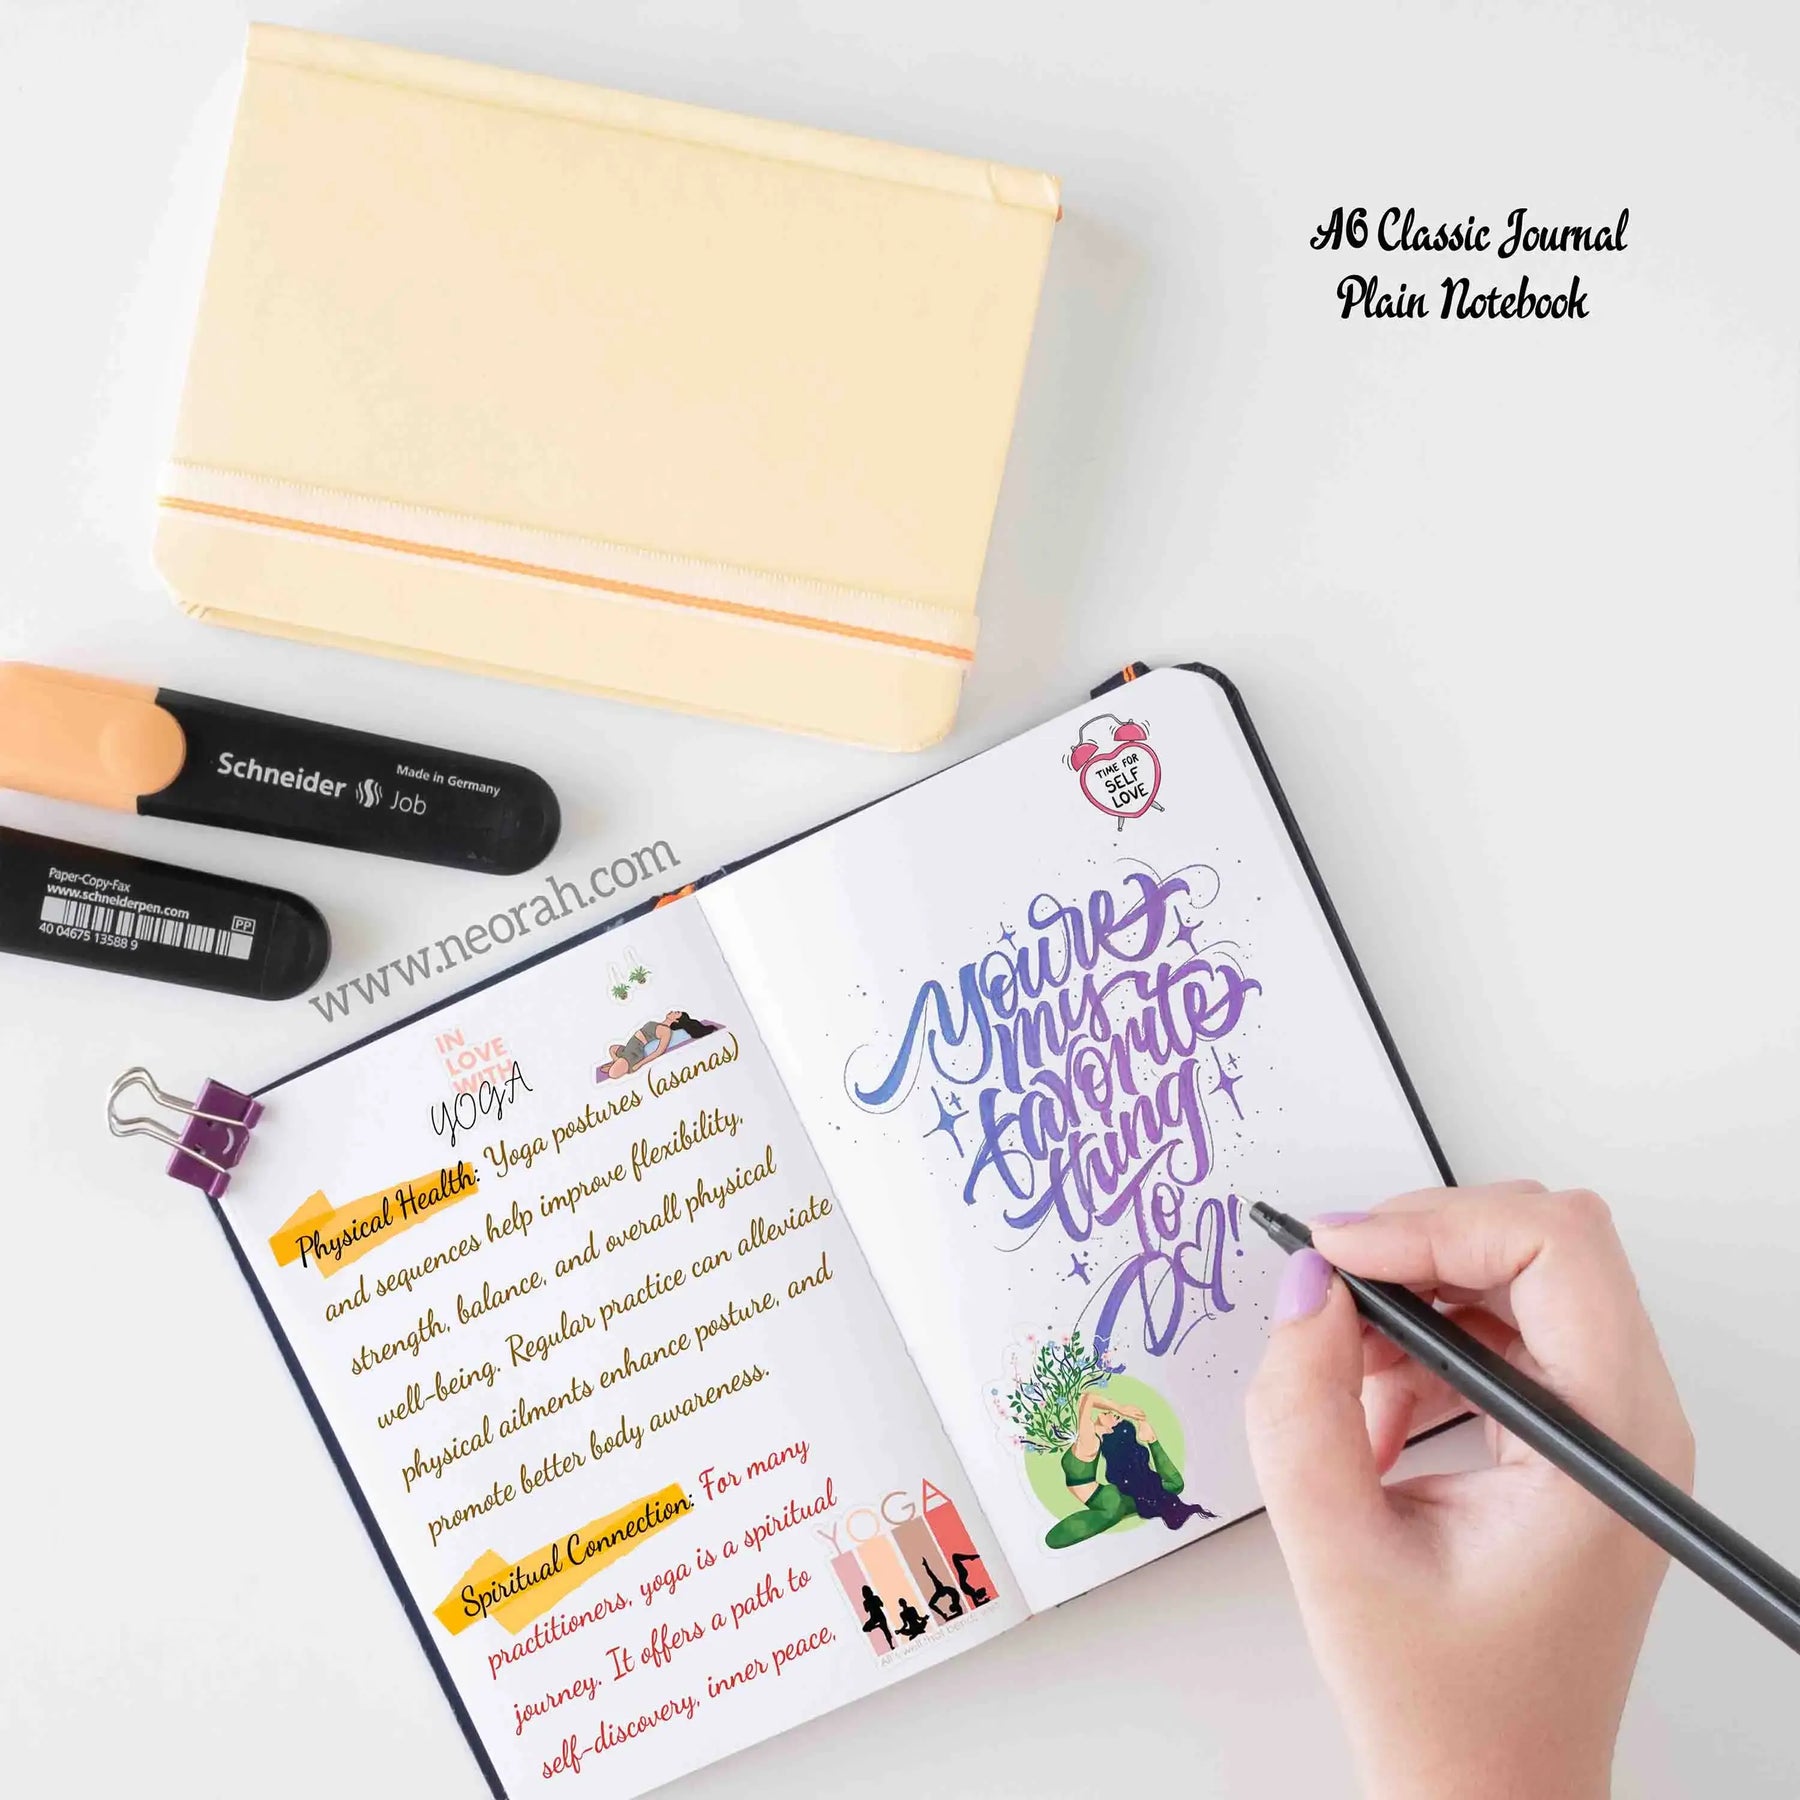 A6 Classic Journal
Plain Notebook
Schneider Job
Made in Germany
Paper-Copy-Fax
www.schneiderpen.com
PP
40 04675 13588 9
www.neorah.com
IN
LOVE
WITH
YOGA
Physical Health: Yoga postures (asanas)
and sequences help improve flexibility,
strength, balance, and overall physical
well-being. Regular practice can alleviate
physical ailments enhance posture, and
promote better body awareness.
Spiritual Connection: For many
practitioners, yoga is a spiritual
journey. It offers a path to
self-discovery, inner peace,
YOGA
All's well that bends well
TIME FOR
SELF
LOVE
You're
my
favorite
thing
To
DO!